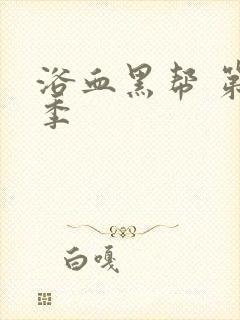 浴血黑帮 第
季
白嘎